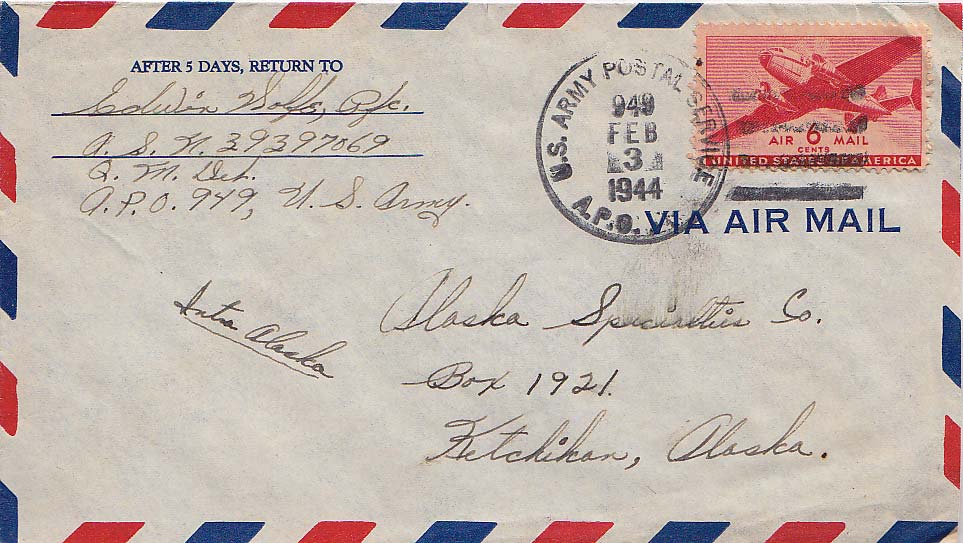 AFTER 5 DAYS, RETURN TO
Edwin Wolfs, Pfc.
A. S. N. 39397069
Q. M. Det.
A.P.O. 949, U. S. Army.
U.S. ARMY POSTAL SERVICE
949
FEB
3
1944
A.P.O.
AIR 6 MAIL
CENTS
UNITED STATES OF AMERICA
VIA AIR MAIL
Intra Alaska
Alaska Specialties Co.
Box 1921.
Ketchikan, Alaska.